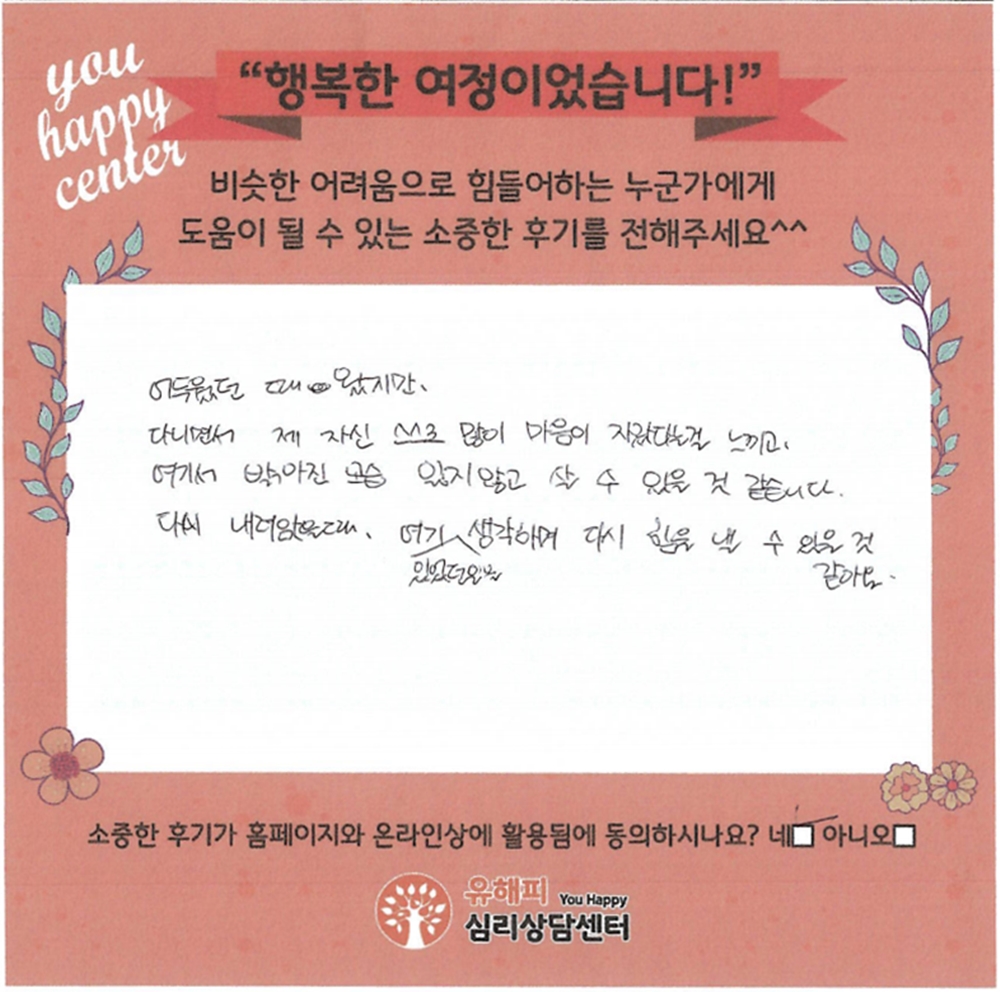 you
happy
center
“행복한 여정이었습니다!”
비슷한 어려움으로 힘들어하는 누군가에게
도움이 될 수 있는 소중한 후기를 전해주세요^^
어두웠던 때 왔지만,
다니면서 제 자신 스스로 많이 마음이 자랐다는걸 느끼고,
여기서 밝아진 모습 잃지않고 살 수 있을 것 같습니다.
다시 내려앉을때, 여기 생각하며 다시 힘을 낼 수 있을 것
같아요.
소중한 후기가 홈페이지와 온라인상에 활용됨에 동의하시나요? 네 아니오
유해피 You Happy
심리상담센터